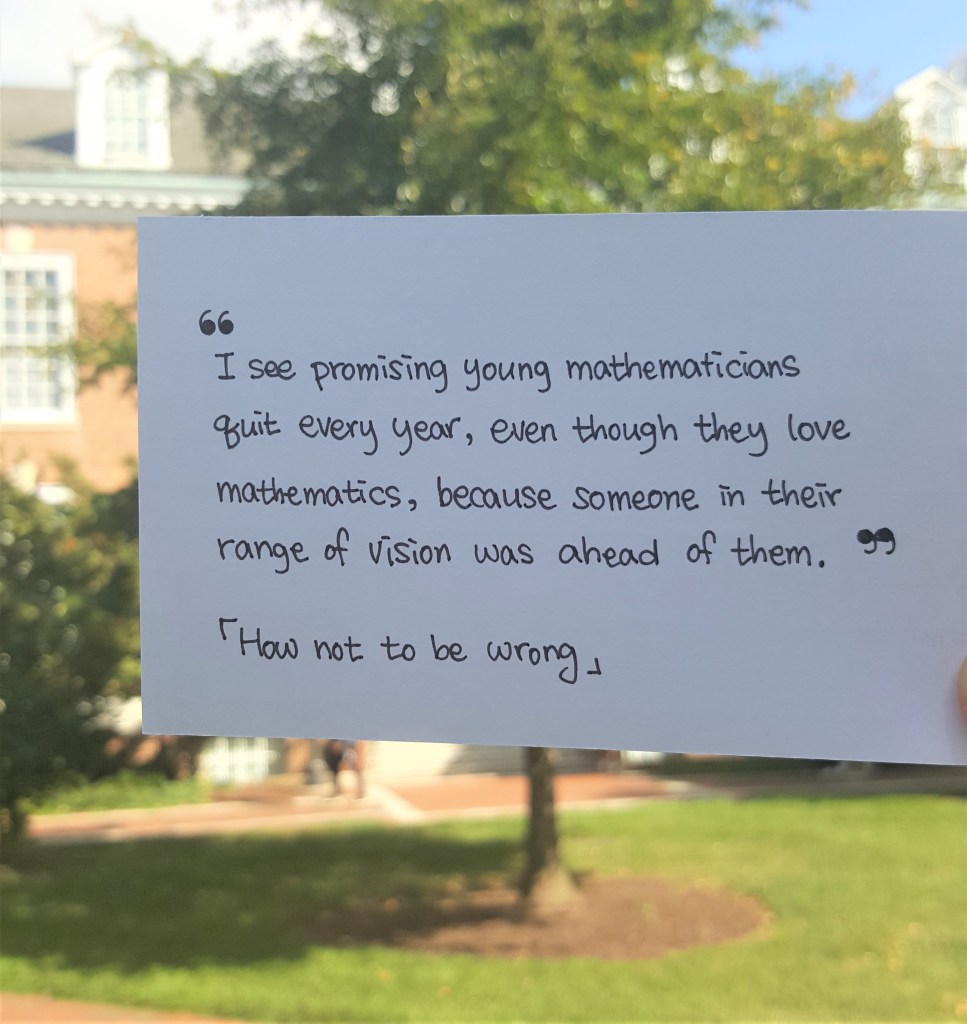 “
I see promising young mathematicians
quit every year, even though they love
mathematics, because someone in their
range of vision was ahead of them. ”
「How not to be wrong」